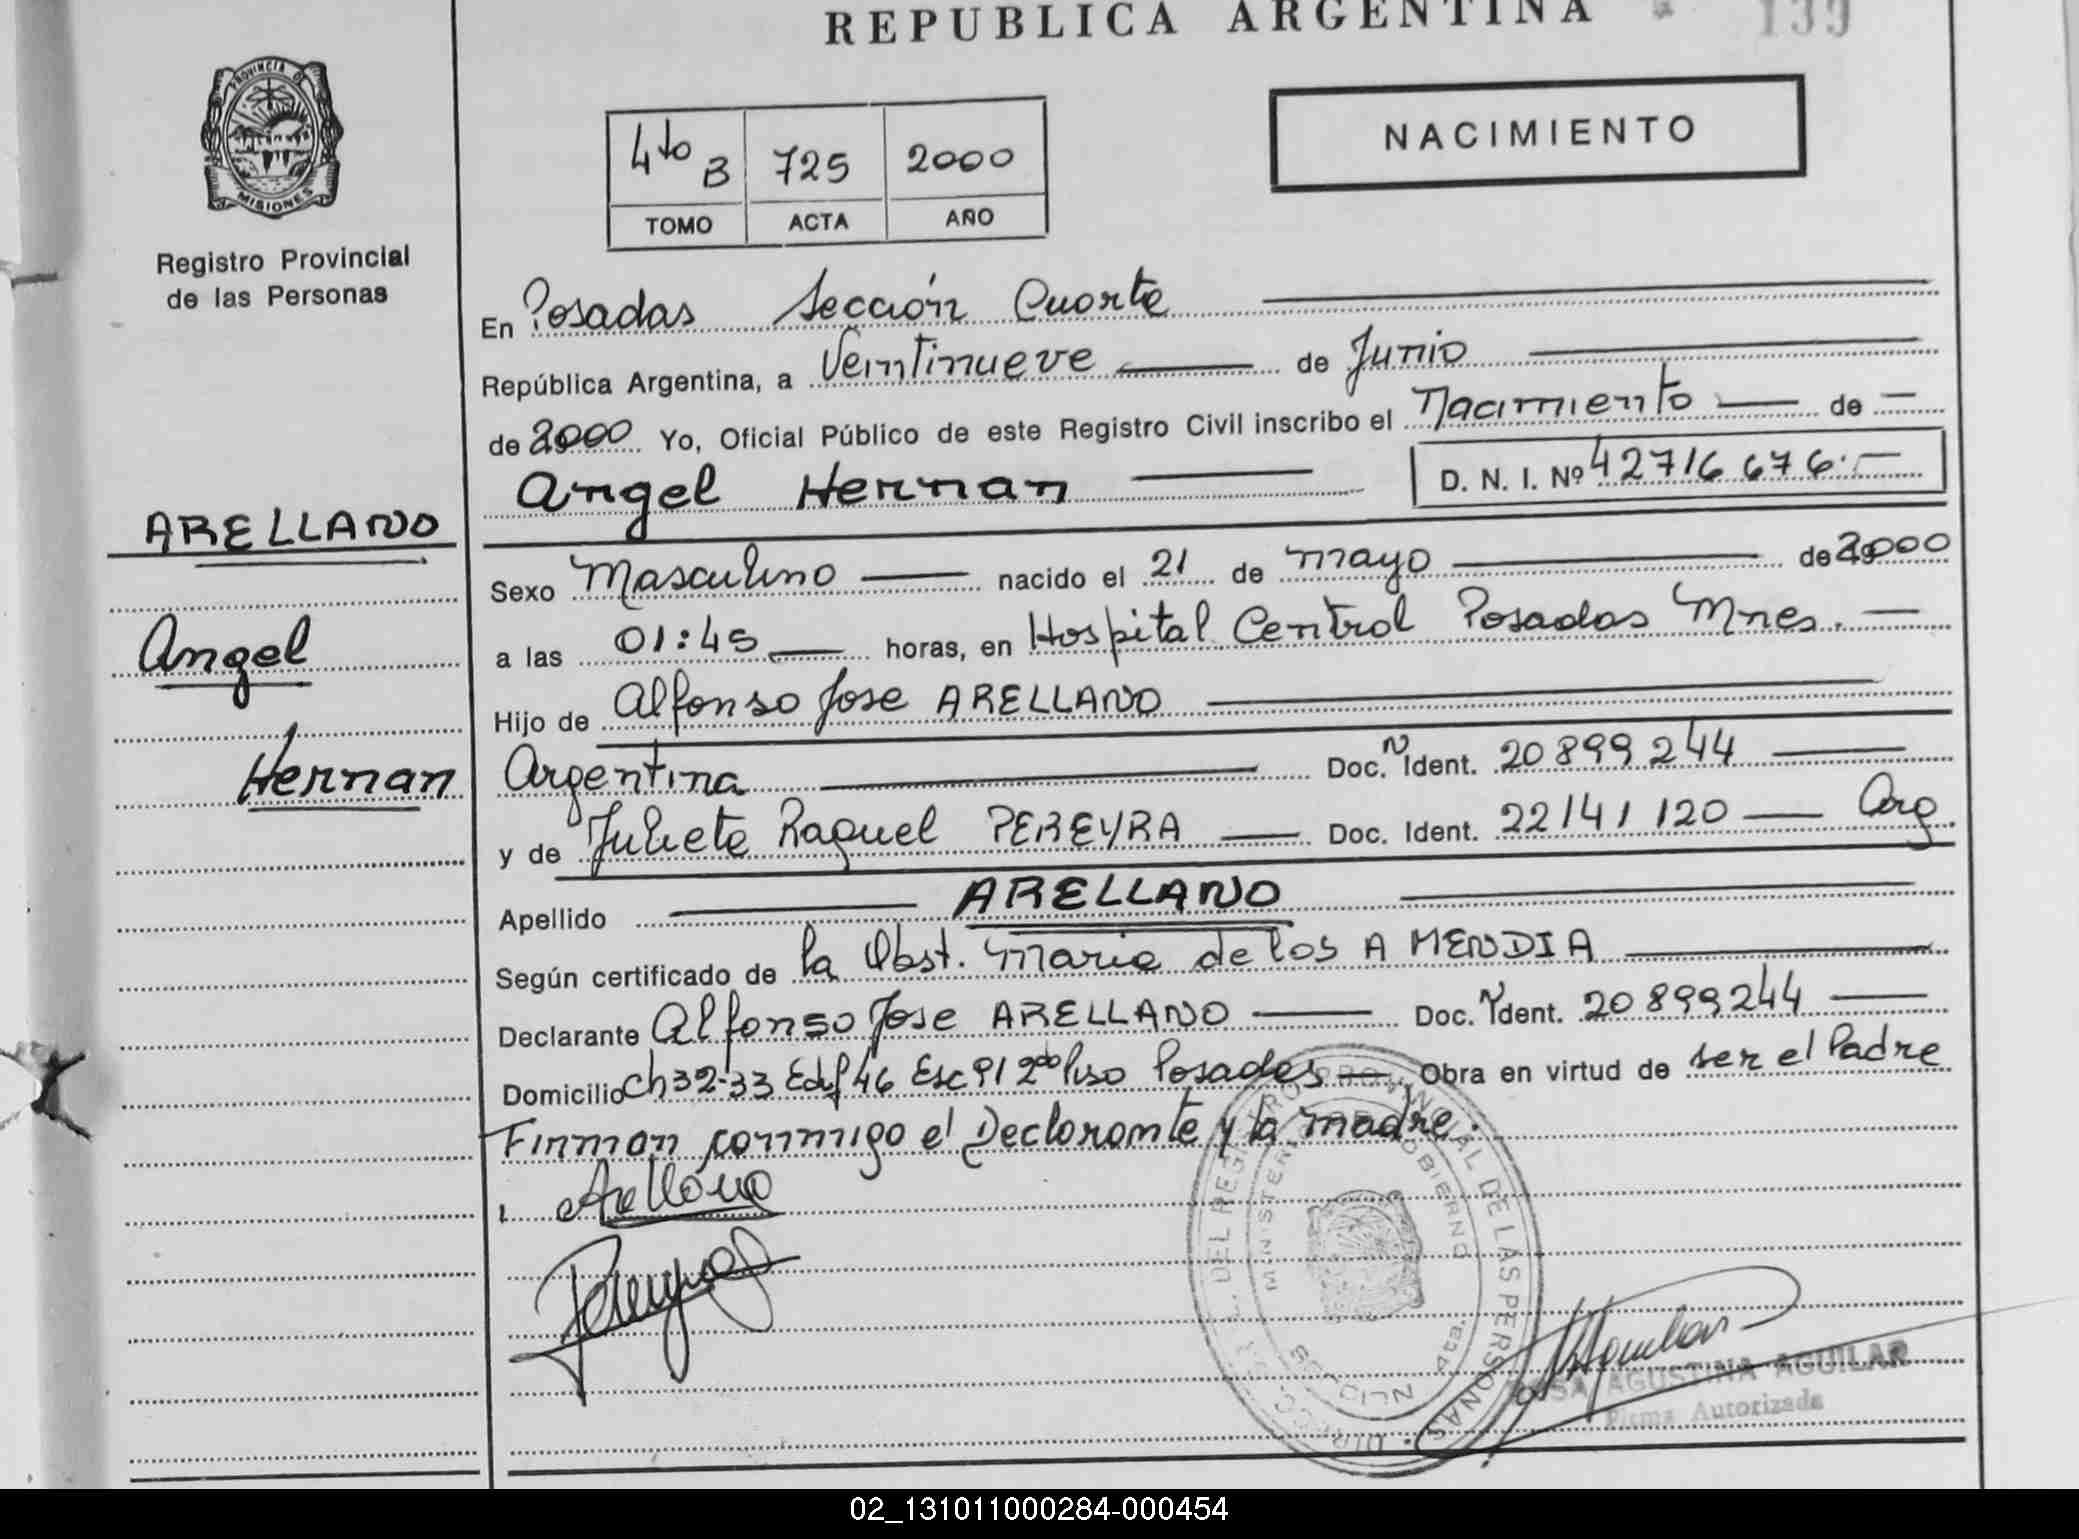 REPUBLICA ARGENTINA
139
PROVINCIA DE
MISIONES
Registro Provincial
de las Personas
4to B 725 2000
TOMO ACTA AÑO
NACIMIENTO
En Posadas Sección Cuarta
República Argentina, a Veintinueve de Junio
de 2000 Yo, Oficial Público de este Registro Civil inscribo el Nacimiento de
Angel Hernan D. N. I. Nº 42716676.
ARELLANO
Angel
Hernan
Sexo Masculino nacido el 21 de mayo de 2000
a las 01:45 horas, en Hospital Central Posadas Mnes.
Hijo de Alfonso Jose ARELLANO
Argentina Doc. N Ident. 20899244
y de Julieta Raquel PEREYRA Doc. Ident. 22141120 Arg
Apellido ARELLANO
Según certificado de la Obst. Maria de los A MENDIA
Declarante Alfonso Jose ARELLANO Doc. N Ident. 20899244
Domicilio Ch 32-33 Edif 46 Esc 91 2do Piso Posadas Obra en virtud de ser el Padre
Firman conmigo el Declarante y la madre.
Arellano
Pereyra
DIRECC. GRAL. DEL REGISTRO PROVINCIAL DE LAS PERSONAS
MINISTERIO DE GOBIERNO
SECCION 4ta.
ROSA AGUSTINA AGUILAR
Firma Autorizada
02_131011000284-000454